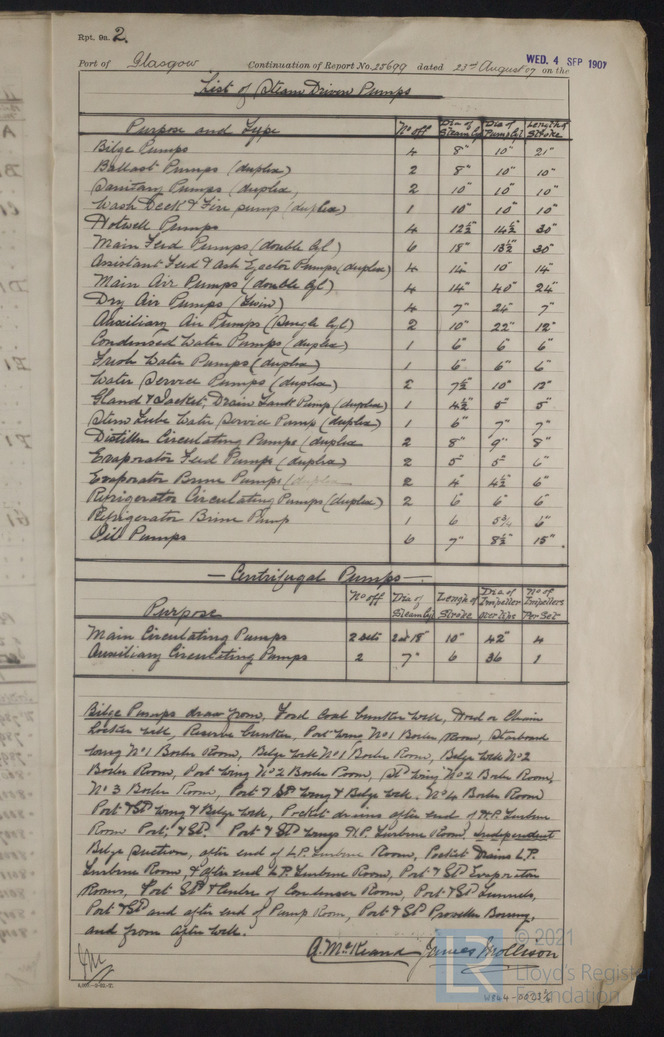 Rpt. 9a. 2.
WED. 4 SEP 1907
Port of Glasgow Continuation of Report No. 25699 dated 23rd August 07 on the
List of Steam Driven Pumps
Purpose and Type No off Dia of Steam Cyl Dia of Pump Cyl Length of Stroke
Bilge Pumps 4 8" 10" 21"
Ballast Pumps (duplex) 2 8" 10" 10"
Sanitary Pumps (duplex) 2 10" 10" 10"
Wash Deck & Fire pump (duplex) 1 10" 10" 10"
Hotwell Pumps 4 12½" 14½" 30"
Main Feed Pumps (double Cyl) 6 18" 13½" 30"
Assistant Feed & Ash Ejector Pumps (duplex) 4 14" 10" 14"
Main Air Pumps (double Cyl) 4 14" 40" 24"
Dry Air Pumps (Twin) 4 7" 24" 7"
Auxiliary Air Pumps (Single Cyl) 2 10" 22" 12"
Condensed Water Pumps (duplex) 1 6" 6" 6"
Fresh Water Pumps (duplex) 1 6" 6" 6"
Water Service Pumps (duplex) 2 7½" 10" 12"
Gland & Jacket, Drain Tank Pump (duplex) 1 4½" 5" 5"
Stern Tube Water Service Pump (duplex) 1 6" 7" 7"
Distiller Circulating Pumps (duplex 2 8" 9" 8"
Evaporator Feed Pumps (duplex) 2 5" 5" 6"
Evaporator Brine Pumps (duplex 2 4" 4½" 6"
Refrigerator Circulating Pumps (duplex) 2 6" 6" 6"
Refrigerator Brine Pump 1 6 5¾" 6"
Oil Pumps 6 7" 8½" 15"
Centrifugal Pumps
Purpose No off Dia of Steam Cyl Length of Stroke Dia of Impeller over tips No of Impellers Per Set
Main Circulating Pumps 2 sets 10" 42" 4
Auxiliary Circulating Pumps 2 7" 6 36 1
Bilge Pumps draw from, Ford Coal bunker well, Hord or Chain
Locker well, Reserve bunker, Port Wing No 1 Boiler Room, Starboard
Wing No 1 Boiler Room, Bilge Well No 1 Boiler Room, Bilge Well No 2
Boiler Room, Port Wing No 2 Boiler Room, Std Wing No 2 Boiler Room,
No 3 Boiler Room, Port & Std Wing & Bilge Well, No 4 Boiler Room
Port & Std Wing & Bilge Well, Pocket drains after end of H.P. Turbine
Room Port & Std. Port & Std Wings H.P. Turbine Room, Independent
Bilge Suction, after end of L.P. Turbine Room, Pocket Drains L.P.
Turbine Room, & after end L.P. Turbine Room, Port & Std Evaporator
Rooms, Port Std & Centre of Condenser Room, Port & Std Tunnels,
Port & Std and after end of Pump Room, Port & Std Propeller Bossing,
and from after well.
A. McKeand James Mollison
© 2021
Lloyd's Register
Foundation
LR